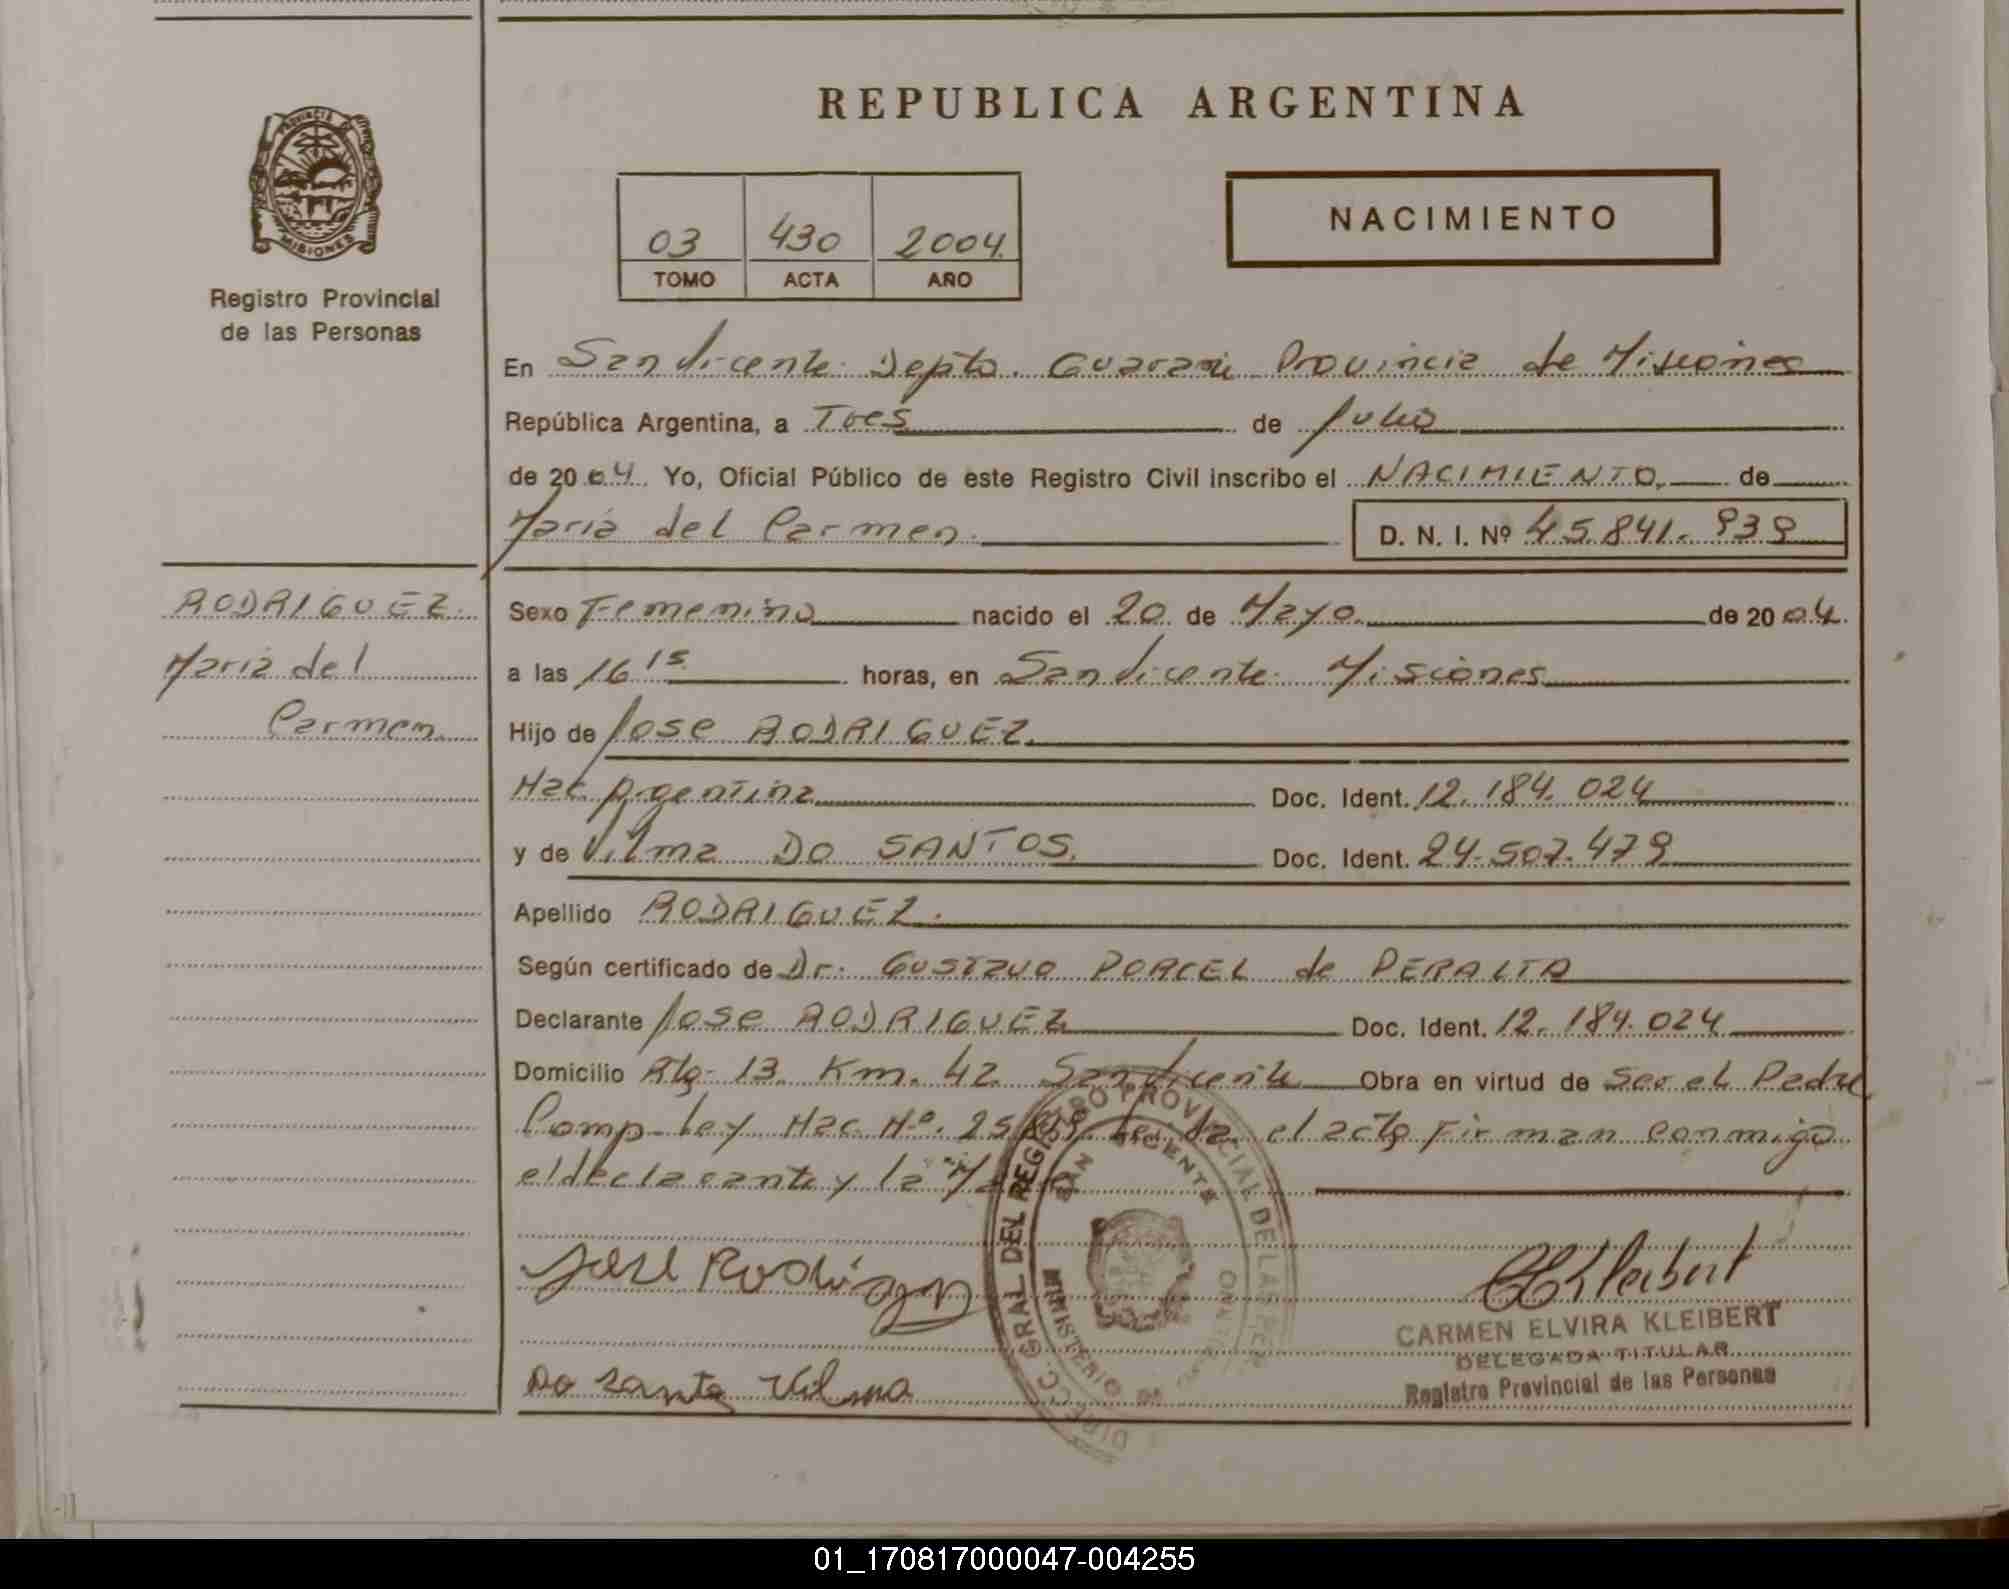 REPUBLICA ARGENTINA
PROVINCIA DE
MISIONES
Registro Provincial
de las Personas
03 430 2004.
TOMO ACTA AÑO
NACIMIENTO
En San Vicente. Depto. Guarani Provincia de Misiones
República Argentina, a Tres de Julio
de 2004. Yo, Oficial Público de este Registro Civil inscribo el NACIMIENTO, de
Maria del Carmen. D. N. I. Nº 45.841.939
RODRIGUEZ.
Maria del
Carmen.
Sexo Femenino nacido el 20 de Mayo. de 2004.
a las 16 15 horas, en San Vicente. Misiones
Hijo de Jose RODRIGUEZ.
Nac Argentina Doc. Ident. 12.184.024
y de Vilma DO SANTOS. Doc. Ident. 24.507.479
Apellido RODRIGUEZ.
Según certificado de Dr. Gustavo PORCEL de PERALTA
Declarante Jose RODRIGUEZ Doc. Ident. 12.184.024
Domicilio Rta. 13 Km. 42 San Vicente Obra en virtud de Ser el Padre
Comp. Ley Nac. Nº. el acta Firman conmigo
el declarante y la
Jose Rodriguez
Do Santo Vilma
DIRECC. GRAL DEL REGISTRO PROVINCIAL DE LAS PER
SAN VICENTE
MINISTERIO DE
CEKleibert
CARMEN ELVIRA KLEIBERT
DELEGADA TITULAR
Registro Provincial de las Personas
01_170817000047-004255